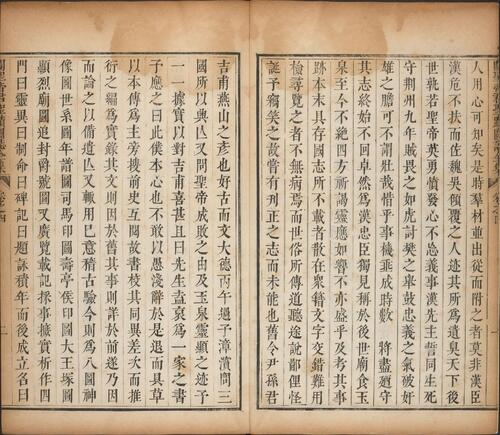 人用心可知矣是時羣材並出從而附之者莫非漢臣
漢危不扶而佐魏吳傾覆之人迹其所為遺臭天下後
世孰若聖帝英勇憤發心不忘義事漢先主誓同生死
守荆州九年賊畏之如虎討樊之舉鼓忠義之氣破奸
雄之膽可不謂壯哉惜乎事機垂成時數　將盡廻守
其志終始不回卓然為漢忠臣獨見稱於後世廟食玉
泉至今不絶四方所謁靈應如響不亦盛乎及考其事
跡本末具存國志所不載者散在衆籍文字交錯難用
檢尋覽之者不無病焉而世俗所傳道聽途說鄙俚怪
誕予竊笑之故嘗有刋正之志而未能也舊令尹孫君
吉甫燕山之彦也好古而文大德丙午過予漳濱問三
國所以興亾又問聖帝成敗之由及玉泉靈顯之迹予
一一據實以對吉甫喜甚且曰先生盍裒為一家之書
予應之曰此僕本心也不敢以愚淺辭於是退而具草
以本傳為主旁搜前史互閱故書校其同異差次而推
衍之編為實錄其文則因於舊其事則詳於前遂乃因
而論之以備遺亾又輒用已意稽古驗今則為八圖神
像圖世系圖年譜圖司馬印圖壽亭侯印圖大王塚圖
顯烈廟圖追封爵號圖又廣覽載記採事摭實析作四
門曰靈異曰制命曰碑記曰題詠積年而後成立名曰
二